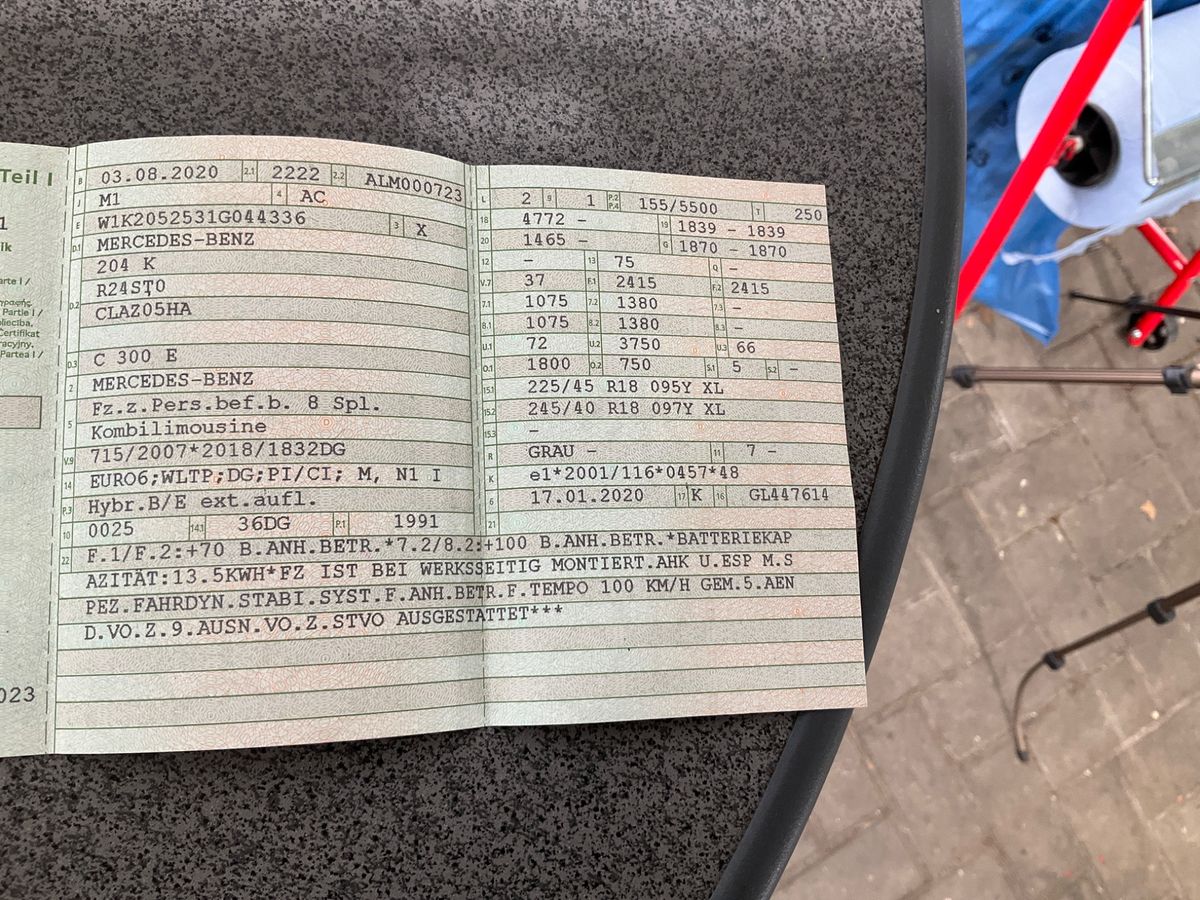 Teil I
1
ik
arte I /
Partie I /
Certifikat
Partea I /
023
B 03.08.2020 2.1 2222 2.2 ALM000723
J M1 4 AC
E W1K2052531G044336 3 X
D.1 MERCEDES-BENZ
204 K
R24STO
D.2 CLAZ05HA
D.3 C 300 E
2 MERCEDES-BENZ
Fz.z.Pers.bef.b. 8 Spl.
5 Kombilimousine
V.9 715/2007*2018/1832DG
14 EURO6;WLTP;DG;PI/CI; M, N1 I
P.3 Hybr.B/E ext.aufl.
10 0025 14.1 36DG P.1 1991
L 2 9 1 P.2 P.4 155/5500 T 250
18 4772 - 19 1839 - 1839
20 1465 - G 1870 - 1870
12 - 13 75 Q -
V.7 37 F.1 2415 F.2 2415
7.1 1075 7.2 1380 7.3 -
8.1 1075 8.2 1380 8.3 -
U.1 72 U.2 3750 U.3 66
O.1 1800 O.2 750 S.1 5 S.2 -
15.1 225/45 R18 095Y XL
15.2 245/40 R18 097Y XL
15.3 -
R GRAU - 11 7 -
K e1*2001/116*0457*48
6 17.01.2020 17 K 16 GL447614
21
22 F.1/F.2:+70 B.ANH.BETR.*7.2/8.2:+100 B.ANH.BETR.*BATTERIEKAP
AZITÄT:13.5KWH*FZ IST BEI WERKSSEITIG MONTIERT.AHK U.ESP M.S
PEZ.FAHRDYN.STABI.SYST.F.ANH.BETR.F.TEMPO 100 KM/H GEM.5.AEN
D.VO.Z.9.AUSN.VO.Z.STVO AUSGESTATTET***